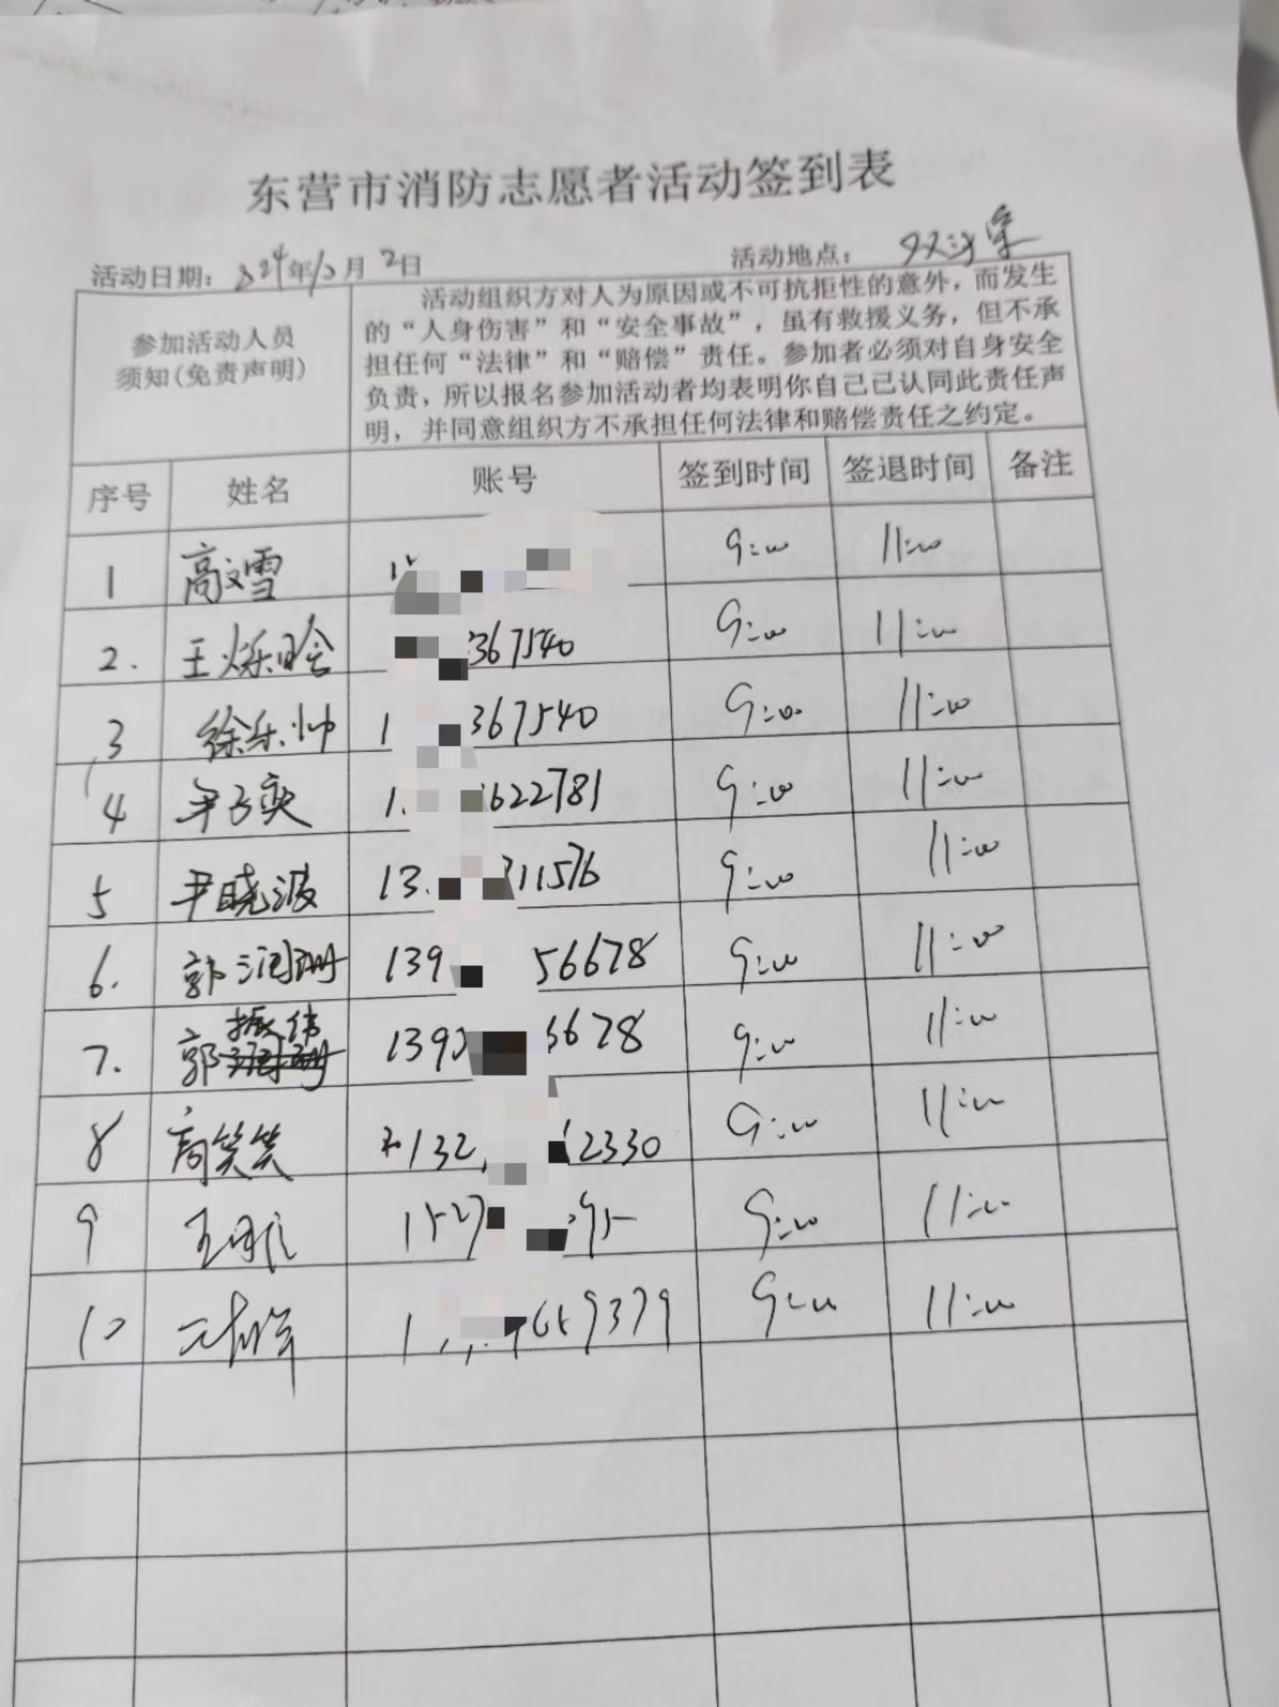 东营市消防志愿者活动签到表
活动日期：2024年10月2日 活动地点：
参加活动人员
须知(免责声明)
活动组织方对人为原因或不可抗拒性的意外，而发生
的“人身伤害”和“安全事故”，虽有救援义务，但不承
担任何“法律”和“赔偿”责任。参加者必须对自身安全
负责，所以报名参加活动者均表明你自己已认同此责任声
明，并同意组织方不承担任何法律和赔偿责任之约定。
序号 姓名 账号 签到时间 签退时间 备注
1 高文雪 9:00 11:00
2. 王烁晗 367540 9:00 11:00
3 徐乐帅 1 367540 9:00 11:00
4 尹子奕 1 622781 9:00 11:00
5 尹晓波 13 11576 9:00 11:00
6. 郭润珊 139 56678 9:00 11:00
7. 郭振伟 139 6678 9:00 11:00
8 高笑笑 132 2330 9:00 11:00
9 王雅 1527 95 9:00 11:00
10 1 9379 9:00 11:00